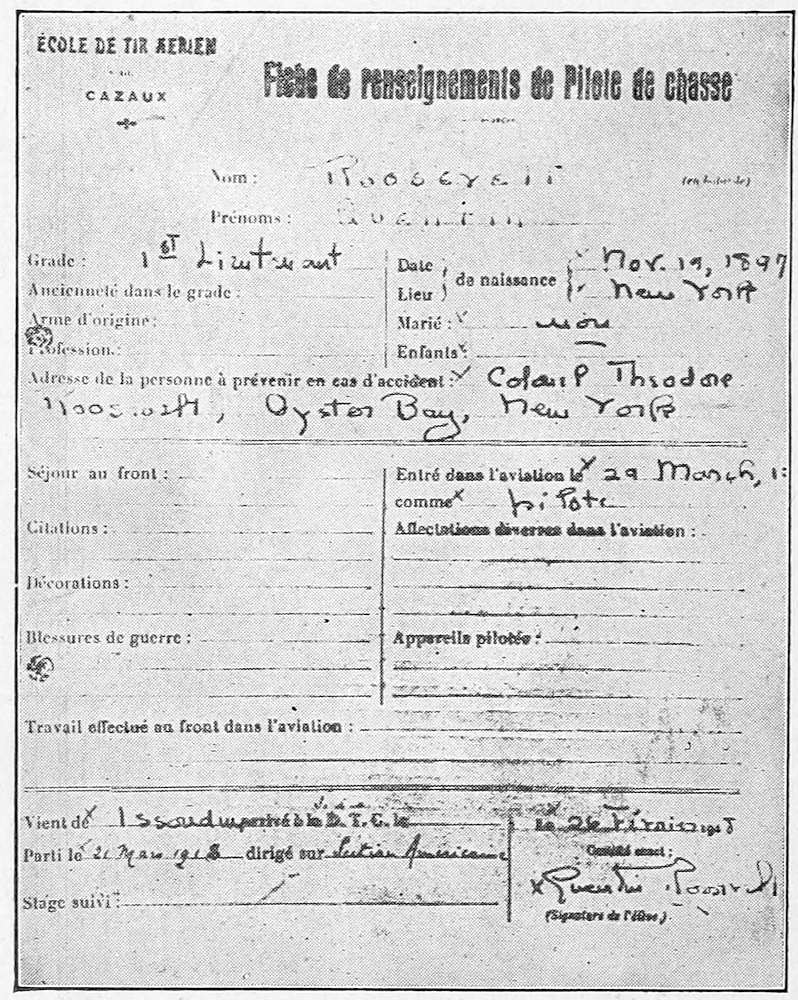 ÉCOLE DE TIR AERIEN
DE
CAZAUX
Fiche de renseignements de Pilote de chasse
Nom : Roosevelt
Prénoms : Quentin
Grade : 1st Lieutenant
Ancienneté dans le grade :
Arme d'origine :
Profession :
Date
Lieu
de naissance
Nov. 19, 1897
New York
Marié : non
Enfants :
Adresse de la personne à prévenir en cas d'accident : Colonel Theodore
Roosevelt, Oyster Bay, New York
Séjour au front :
Citations :
Décorations :
Blessures de guerre :
Entré dans l'aviation le 29 March,
comme pilote
Affectations diverses dans l'aviation :
Appareils pilotés :
Travail effectué au front dans l'aviation :
Vient de Issoudun
Parti le 21 Mars 1918 dirigé sur Section Américaine
Stage suivi :
Le 26 Février 1918
Certifié exact :
x Quentin Roosevelt
(Signature de l'élève.)